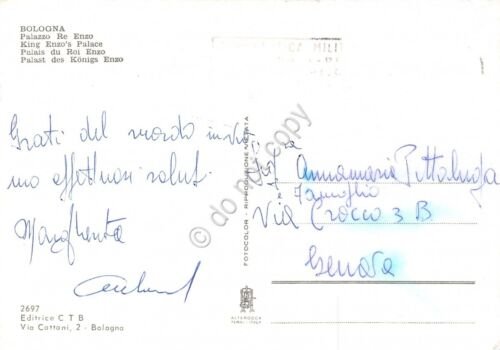 BOLOGNA
Palazzo Re Enzo
King Enzo's Palace
Palais du Roi Enzo
Palast des Königs Enzo
Grati del ricordo invia
mo affettuosi saluti
Margherita
Annamaria Pittaluga
Famiglia
Via Crocco 3 B
Genova
2697
Editrice C T B
Via Cattani, 2 - Bologna
FOTOCOLOR - RIPRODUZIONE VIETATA
ALTEROCCA
TERNI, ITALY
do not copy